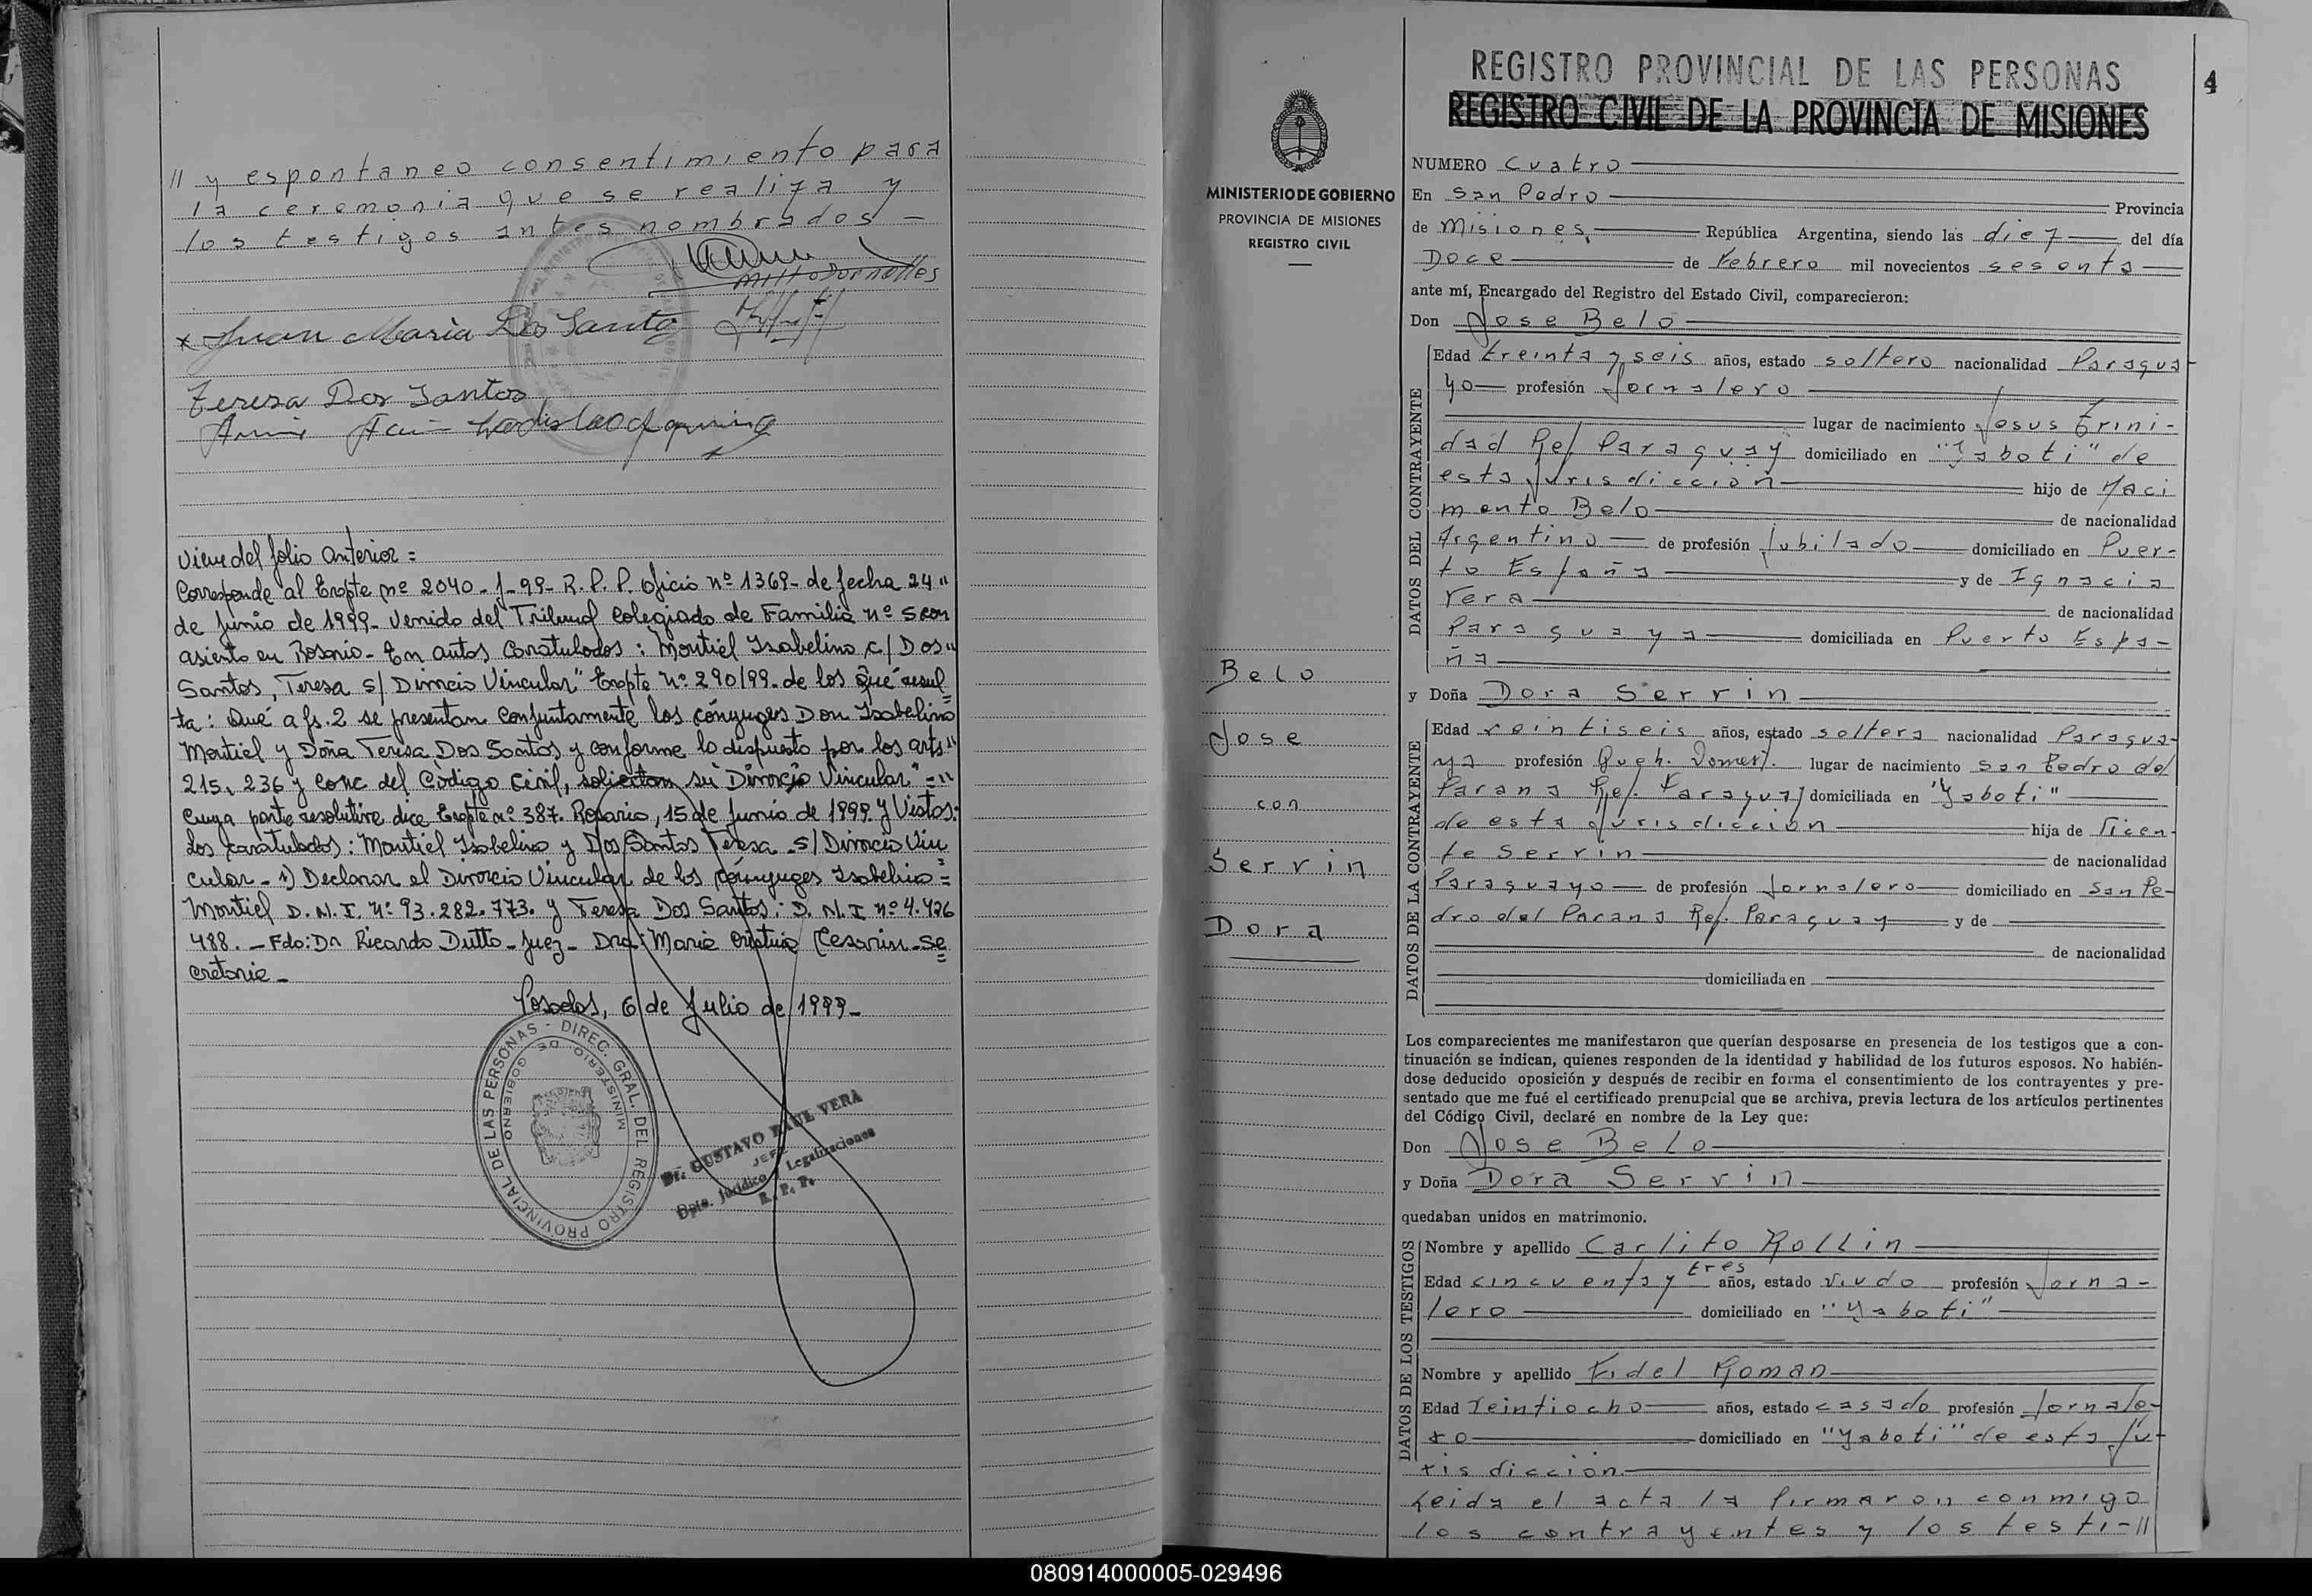 // y espontaneo consentimiento para
la ceremonia que se realiza y
los testigos antes nombrados —
x Juan Maria Dos Santo
Teresa Dos Santos
Ladislao Aquino
Viene del folio anterior =
Corresponde al Expte nº 2040 - J - 99 - R. P. P. Oficio nº 1369 - de fecha 24 "
de Junio de 1999 - Venido del Tribunal Colegiado de Familia nº 5 con
asiento en Rosario - En autos Caratulados: Montiel Isabelino c/ Dos "
Santos, Teresa s/ Divorcio Vincular" Expte nº 290/99. de los Que resul=
ta: Que a fs. 2 se presentan conjuntamente los cónyuges Don Isabelino
Montiel y Doña Teresa Dos Santos y conforme lo dispuesto por los arts "
215, 236 y conc del Código Civil, solicitan su "Divorcio Vincular" = "
Cuya parte resolutiva dice Expte nº 387. Rosario, 15 de Junio de 1999. Y Vistos:
Los caratulados: Montiel Isabelino y Dos Santos Teresa - s/ Divorcio Vin
cular - 1) Declarar el Divorcio Vincular de los cónyuges Isabelino =
Montiel D. N. I. Nº 93.282.773. y Teresa Dos Santos: D. N. I nº 4.426
488. - Fdo: Dr Ricardo Dutto - Juez - Dra: Maria Cristina Cesarin - Se
cretaria -
Posadas, 6 de Julio de 1999 -
REGISTRO PROVINCIAL DE LAS PERSONAS - DIREC. GRAL. DEL
MINISTERIO DE GOBIERNO
Dr. GUSTAVO RAUL VERA
JEFE
Dpto. Jurídico y Legalizaciones
R. P. P.
MINISTERIO DE GOBIERNO
PROVINCIA DE MISIONES
REGISTRO CIVIL
Belo
Jose
con
Servin
Dora
REGISTRO PROVINCIAL DE LAS PERSONAS
4
REGISTRO CIVIL DE LA PROVINCIA DE MISIONES
NUMERO Cuatro
En San Pedro Provincia
de Misiones, República Argentina, siendo las diez del día
Doce de Febrero mil novecientos sesenta
ante mí, Encargado del Registro del Estado Civil, comparecieron:
Don Jose Belo
DATOS DEL CONTRAYENTE
Edad treinta y seis años, estado soltero nacionalidad Paragua-
yo profesión Jornalero
lugar de nacimiento Jesus Trini-
dad Rep. Paraguay domiciliado en "Yaboti" de
esta Jurisdiccion hijo de Naci
mento Belo de nacionalidad
Argentino de profesión Jubilado domiciliado en Puer-
to España y de Ignacia
Vera de nacionalidad
Paraguaya domiciliada en Puerto Espa-
ña
y Doña Dora Servin
DATOS DE LA CONTRAYENTE
Edad veintiseis años, estado soltera nacionalidad Paragua-
ya profesión Queh. Domest. lugar de nacimiento San Pedro del
Parana Rep. Paraguay domiciliada en "Yaboti"
de esta Jurisdiccion hija de Vicen-
te Servin de nacionalidad
Paraguayo de profesión Jornalero domiciliado en San Pe-
dro del Parana Rep. Paraguay y de
de nacionalidad
domiciliada en
Los comparecientes me manifestaron que querían desposarse en presencia de los testigos que a con-
tinuación se indican, quienes responden de la identidad y habilidad de los futuros esposos. No habién-
dose deducido oposición y después de recibir en forma el consentimiento de los contrayentes y pre-
sentado que me fué el certificado prenupcial que se archiva, previa lectura de los artículos pertinentes
del Código Civil, declaré en nombre de la Ley que:
Don Jose Belo
y Doña Dora Servin
quedaban unidos en matrimonio.
DATOS DE LOS TESTIGOS
Nombre y apellido Carlito Rollin
Edad cincuenta y tres años, estado viudo profesión Jorna-
lero domiciliado en "Yaboti"
Nombre y apellido Fidel Roman
Edad Veintiocho años, estado casado profesión Jornale-
ro domiciliado en "Yaboti" de esta Ju-
risdiccion.
Leida el acta la firmaron conmigo
los contrayentes y los testi-//
080914000005-029496